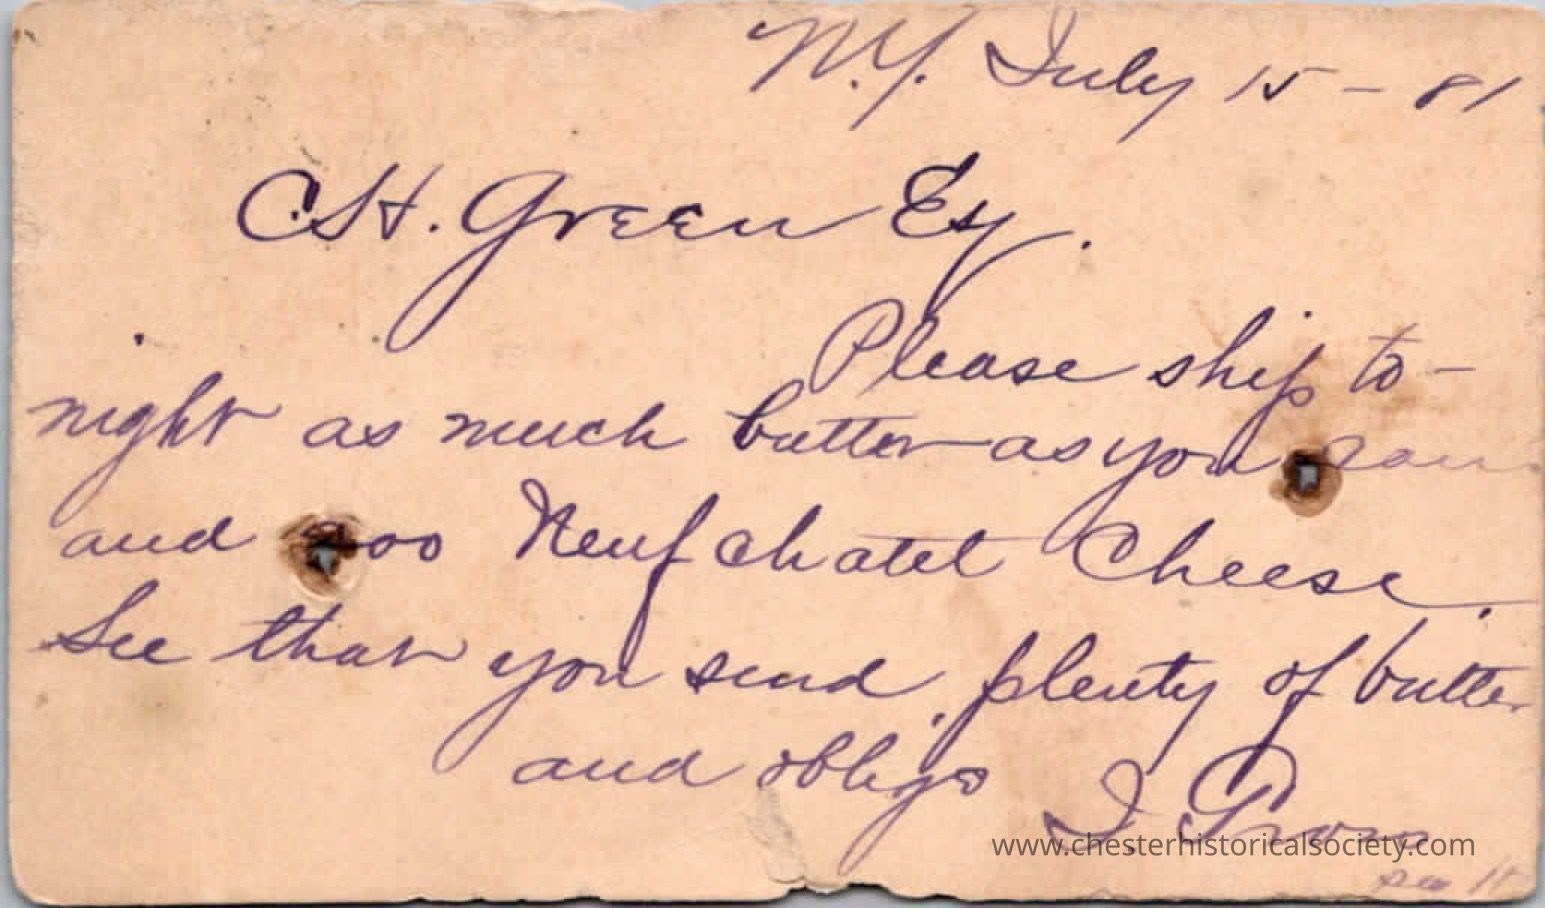 N.Y. July 15 - 81
C.H. Green Esq.
Please ship to-
night as much butter as you can
and 00 Neufchatel Cheese.
See that you send plenty of butter
and oblige I
www.chesterhistoricalsociety.com